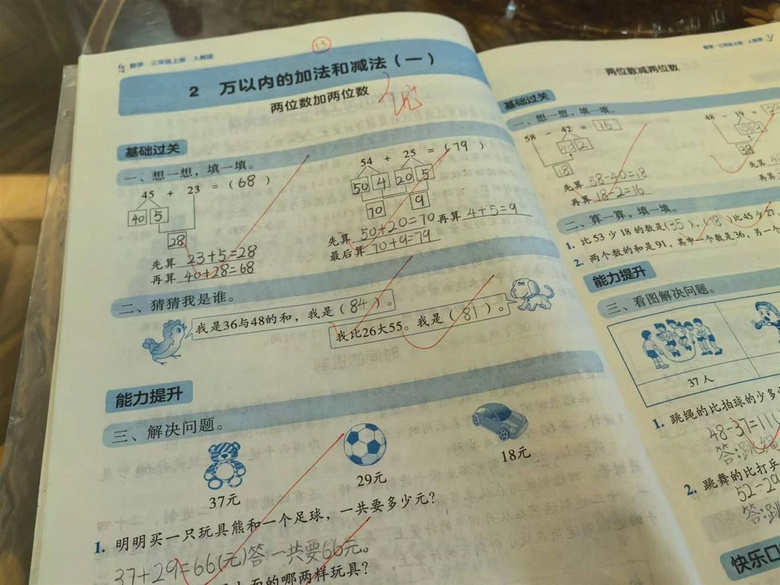 数学 三年级上册 人教版
2 万以内的加法和减法（一）
两位数加两位数
基础过关
一、想一想，填一填。
45 + 23 = (68)
40 5
28
先算 23+5=28
再算 40+28=68
54 + 25 = (79)
50 4 20 5
70 9
先算 50+20=70 再算 4+5=9
最后算 70+9=79
二、猜猜我是谁。
我是36与48的和，我是(84)。
我比26大55。我是(81)。
能力提升
三、解决问题。
37元
29元
18元
1. 明明买一只玩具熊和一个足球，一共要多少元？
37+29=66(元)答一共要66元。
上面的哪两样玩具？
两位数减两位数
基础过关
一、想一想，填一填。
58 - 42 = 16
先算 58-40=18
再算 18-2=16
48 - 19
先算
再算
二、算一算，填一填。
1. 比53少18的数是(35)，
比45少27
2. 两个数的和是91，其中一个数是36，另一个
能力提升
三、看图解决问题。
37人
1. 跳绳的比拍球的少多少
48-37=11
答:跳
2. 跳舞的比打乒
52-29
答:跳
快乐口